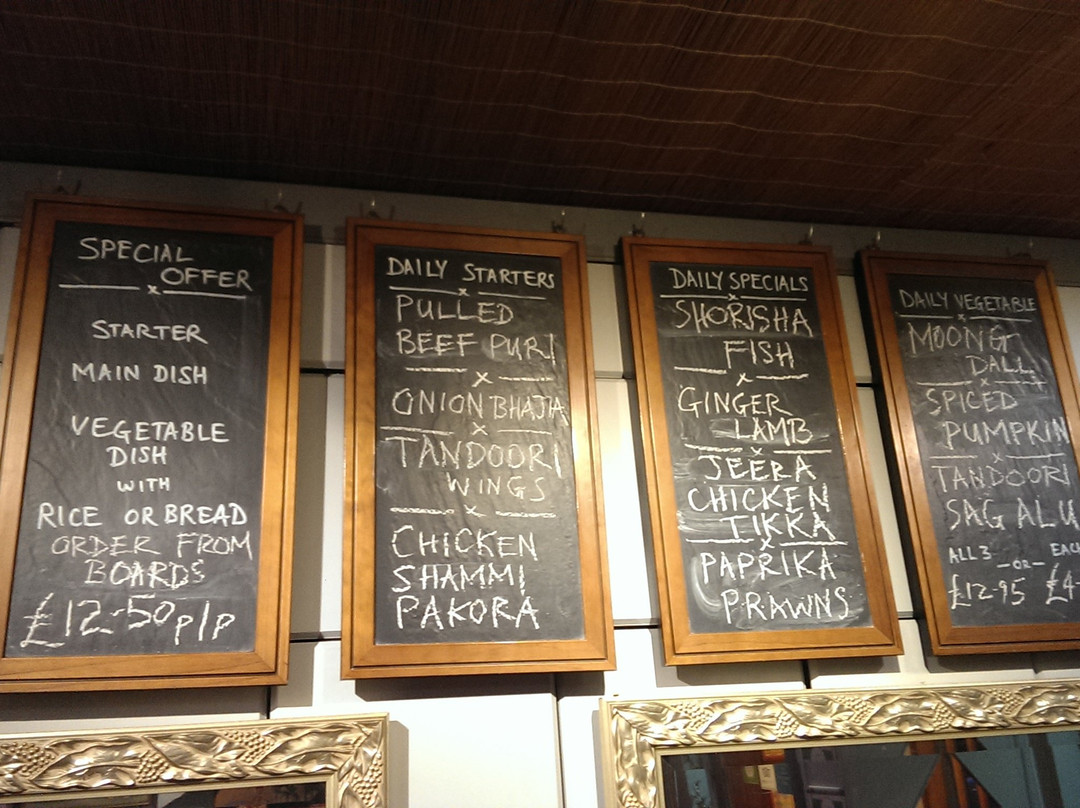 SPECIAL
OFFER
STARTER
MAIN DISH
VEGETABLE
DISH
WITH
RICE OR BREAD
ORDER FROM
BOARDS
£12-50 p/p
DAILY STARTERS
PULLED
BEEF PURI
ONION BHAJIA
TANDOORI
WINGS
CHICKEN
SHAMMI
PAKORA
DAILY SPECIALS
SHORISHA
FISH
GINGER
LAMB
JEERA
CHICKEN
TIKKA
PAPRIKA
PRAWNS
DAILY VEGETABLE
MOONG
DALL
SPICED
PUMPKIN
TANDOORI
SAG ALU
ALL 3 -OR- EACH
£12-95 £4-